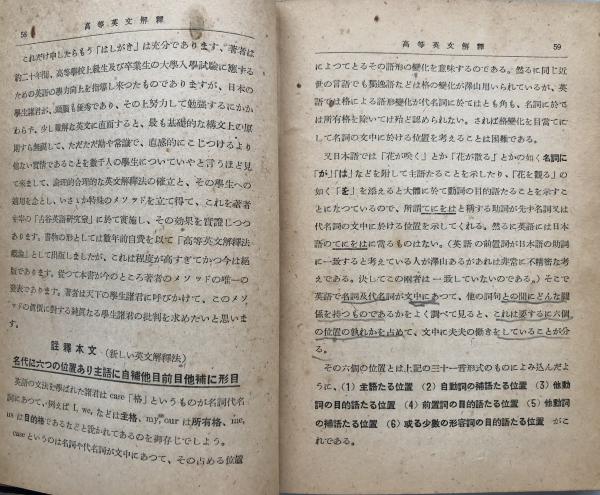 58
高等英文解釋
これだけ申したらもう「はしがき」は充分であります。著者は
約二十年間、高等學校上級生及び卒業生の大學入學試驗に應ずる
ための英語の學力向上を指導し來つたものでありますが、日本の
學生諸君が、頭腦も優秀であり、その上努力して勉強するにかか
わらず、少し難解な英文に直面すると、最も基礎的な構文上の原
則すら無視して、ただただ勘や常識で、直感的にこじつけるより
他ない實情であることを數千人の學生についていやと言うほど見
て來まして、論理的合理的な英文解釋法の確立と、その學生への
適用を念とし、いささか特殊のメソッドを立て得て、これを著者
主宰の「古谷英語硏究室」に於て實施し、その効果を實證しつつ
あります。書物の形としては數年前自費を以て「高等英文解釋法
槪論」として出版しましたが、これは程度が高すぎてか今は絕
版であります。從つて本書が今のところ著者のメソッドの唯一の
發表であります。著者は天下の學生諸君に呼びかけて、このメソ
ッドの眞價に對する純眞なる學生諸君の批判を求めたいと思いま
す。
註釋本文（新しい英文解釋法）
名代に六つの位置あり主語に自補他目前目他補に形目
英語の文法を學ばれた諸君は case「格」というものが名詞代名
詞にあつて、例えば I, we, などは主格、my, our は所有格、me,
us は目的格であるなどと說かれてあるのを御存じでしよう。
case というのは名詞や代名詞が文中にあつて、その占める位置
高等英文解釋
59
によつてとるその語形の變化を意味するのである。然るに同じ近
世の言語でも獨逸語などは格の變化が澤山用いられているが、英
語では格による語形變化が代名詞に於てはとも角も、名詞に於て
は所有格を除いては殆ど認められない。されば格變化を目當てに
して名詞の文中に於ける位置を考えることは困難である。
又日本語では「花が咲く」とか「花が散る」とかの如く名詞に
「が」「は」などを附して主語たることを示したり、「花を觀る」の
如く「を」を添えると大體に於て動詞の目的語たることを示すこ
とになつているので、所謂てにをはと稱する助詞が先す名詞又は
代名詞の文中に於ける位置を示してくれる。然るに英語には日本
語のてにをはに當るものはない。（英語の前置詞が日本語の助詞
に一致すると考えている人が澤山あるがあれは非常に不精密な考
えである。決してこの兩者は一致していないのである。）そこで
英語で名詞及代名詞が文中にあつて、他の詞句との間にどんな關
係を持つものであるかをよく調べて見ると、これは要するに六個
の位置の孰れかを占めて、文中に夫夫の働きをしていることが分
る。
その六個の位置とは上記の三十一音形式のものによみ込んだよ
うに、（1）主語たる位置（2）自動詞の補語たる位置（3）他動
詞の目的語たる位置（4）前置詞の目的語たる位置（5）他動詞
の補語たる位置（6）或る少數の形容詞の目的語たる位置がこ
れである。